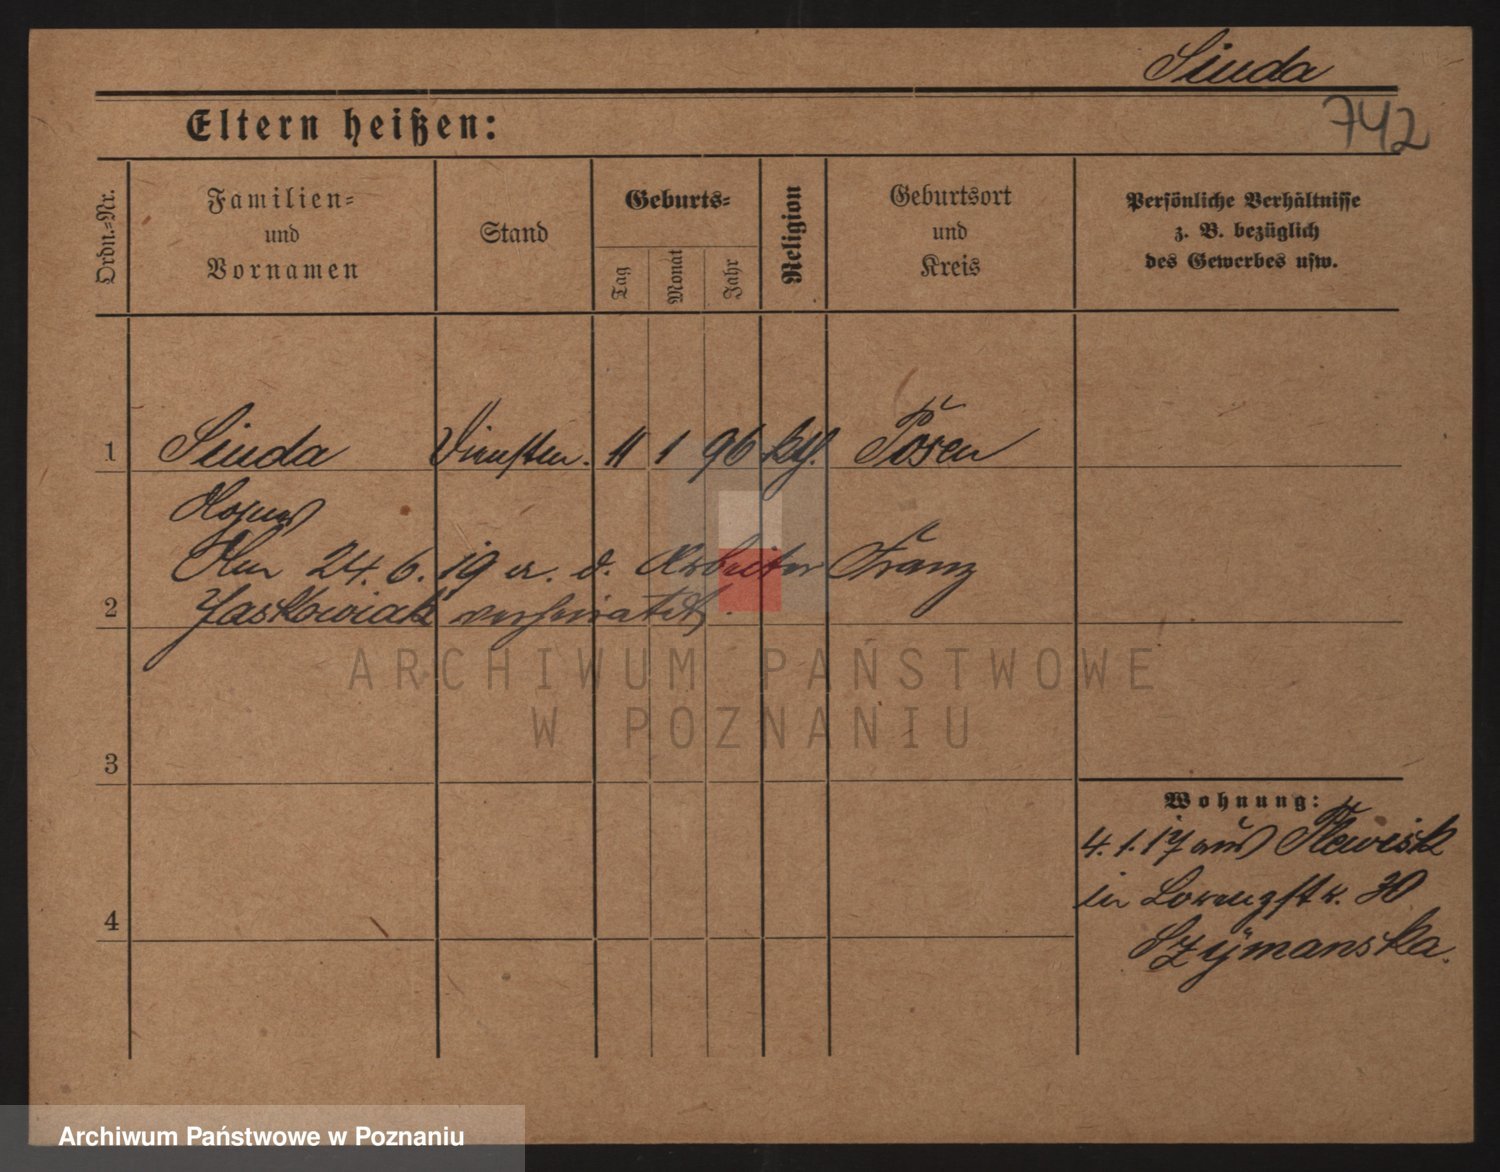 Siuda
742
Eltern heißen:
Ordn.-Nr.
Familien-
und
Vornamen
Stand
Geburts-
Tag
Monat
Jahr
Religion
Geburtsort
und
Kreis
Persönliche Verhältnisse
z. B. bezüglich
des Gewerbes usw.
1 Siuda 11 1 96 kth. Posen
Am 24. 6. 19 m. d. Arbeiter Franz
2 Jaskowiak verheiratet.
ARCHIWUM PAŃSTWOWE
W POZNANIU
3
Wohnung:
4. 1. 17 aus Plewisk
in Lorenzstr. 30
Szÿmanska.
4
Archiwum Państwowe w Poznaniu